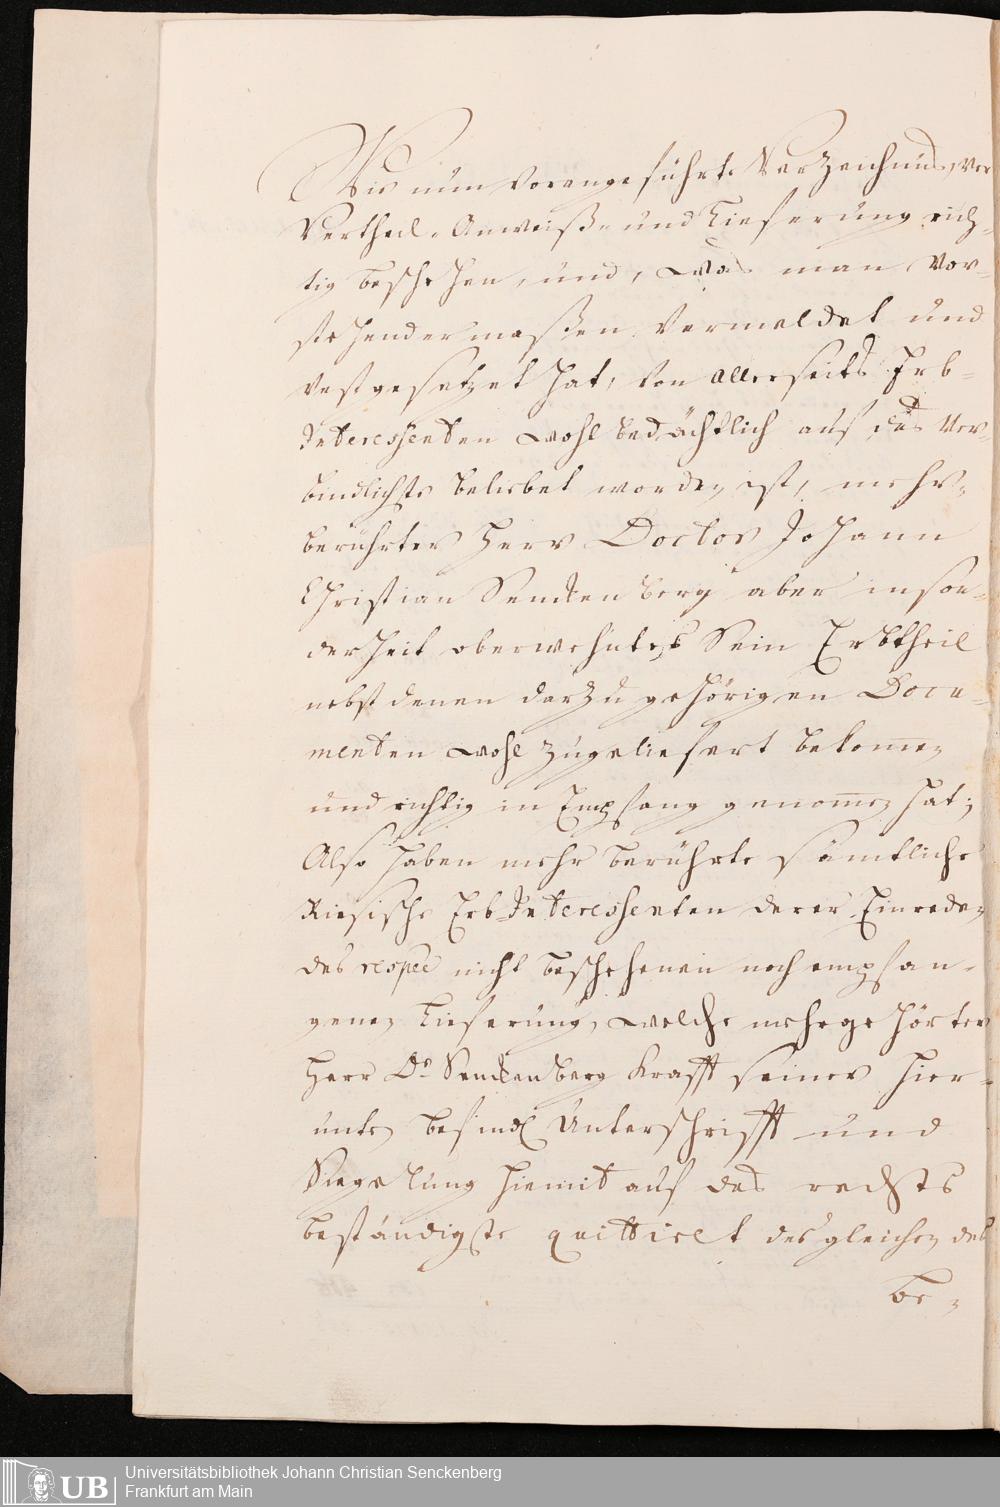 Wie nun vorangeführte Verzeichnüs, Ver
Vertheil- Anweiß- und Lieferung rich-
tig beschehen, und, was man vor-
stehendermaßen vermeldet und
vestgesetzet hat, von allerseits Erb-
Interessenten wohlbedächtlich auf das ver-
bindlichste beliebet worden ist, mehr-
berührter Herr Doctor Johann
Christian Senckenberg aber inson-
derheit oberwehntes Sein Erbtheil
nebst denen darzu gehörigen Docu-
menten wohl zugeliefert bekom̅en
und richtig in Empfang genom̅en hat;
Also haben mehr berührte sämtliche
Riesische Erb-Interessenten derer Einreden
des respeé nicht beschehenen noch empfan-
genen Lieferung, welche mehrgehörter
Herr Dr Senckenberg Krafft seiner hier-
unten befindl Unterschrifft und
Siegelung hiemit auf das rechts
beständigste quittiret desgleichen des
be-
Universitätsbibliothek Johann Christian Senckenberg
Frankfurt am Main
UB